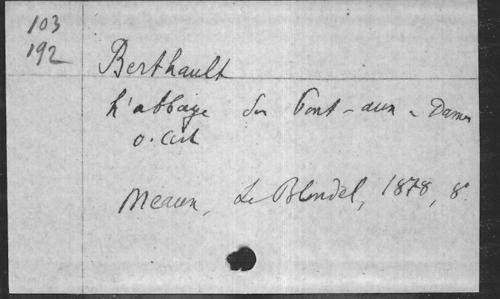 103
192
Berthault
L'abbaye du Pont-aux-Dames
o. cist
Meaux, Le Blondel, 1878, 8°